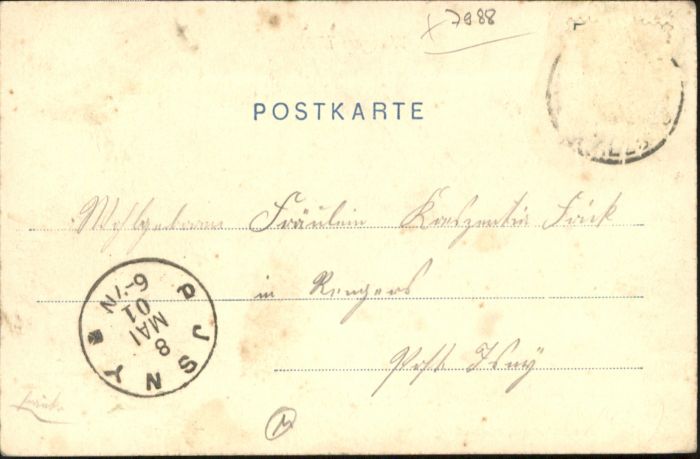 7988
POSTKARTE
Wohlgeboren Fräulein Kreszentia Frick
in Rengers
Post Isny
ISNY
8
MAI
01
6-7N